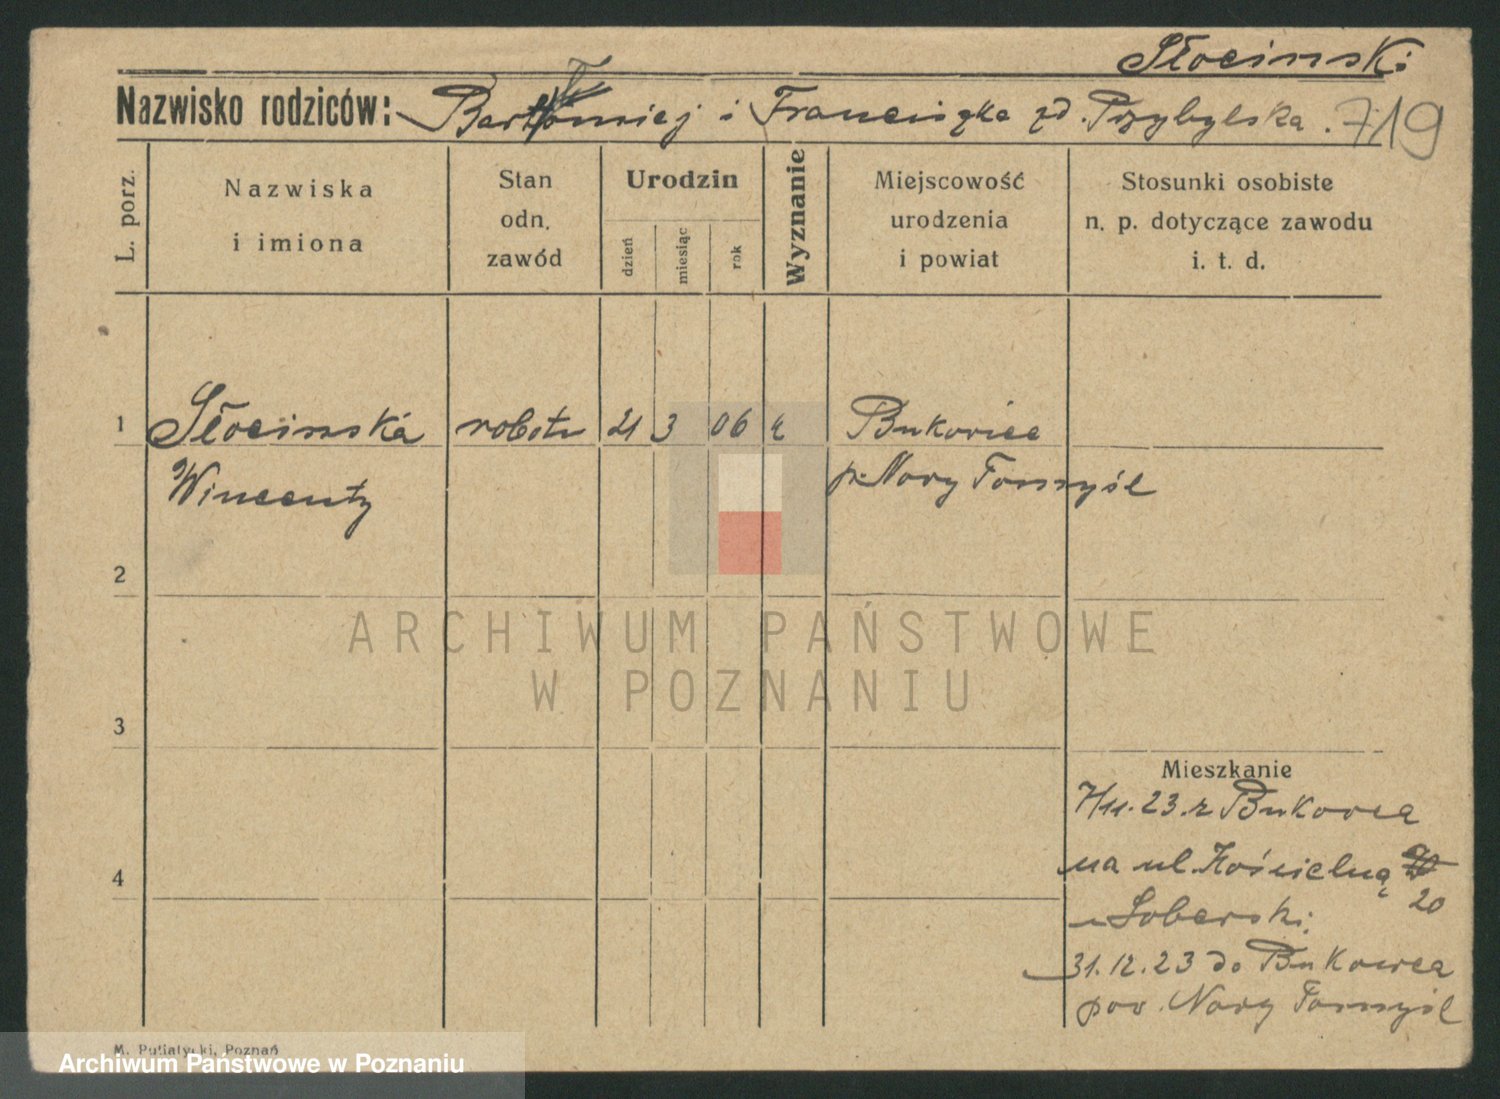 Słociński
Nazwisko rodziców: Bartłomiej i Franciszka zd. Przybylska. 719
L. porz.
Nazwiska
i imiona
Stan
odn.
zawód
Urodzin
dzień
miesiąc
rok
Wyznanie
Miejscowość
urodzenia
i powiat
Stosunki osobiste
n. p. dotyczące zawodu
i. t. d.
1 Słociński robotn 21 3 06 k Bukowiec
Wincenty p. Nowy Tomyśl
2
ARCHIWUM PAŃSTWOWE
W POZNANIU
3
Mieszkanie
7/11.23. z Bukowca
4
na ul. Kościelną
20
u Soberski,
31.12.23 do Bukowca
pow. Nowy Tomyśl
M. Putiatycki, Poznań
Archiwum Państwowe w Poznaniu